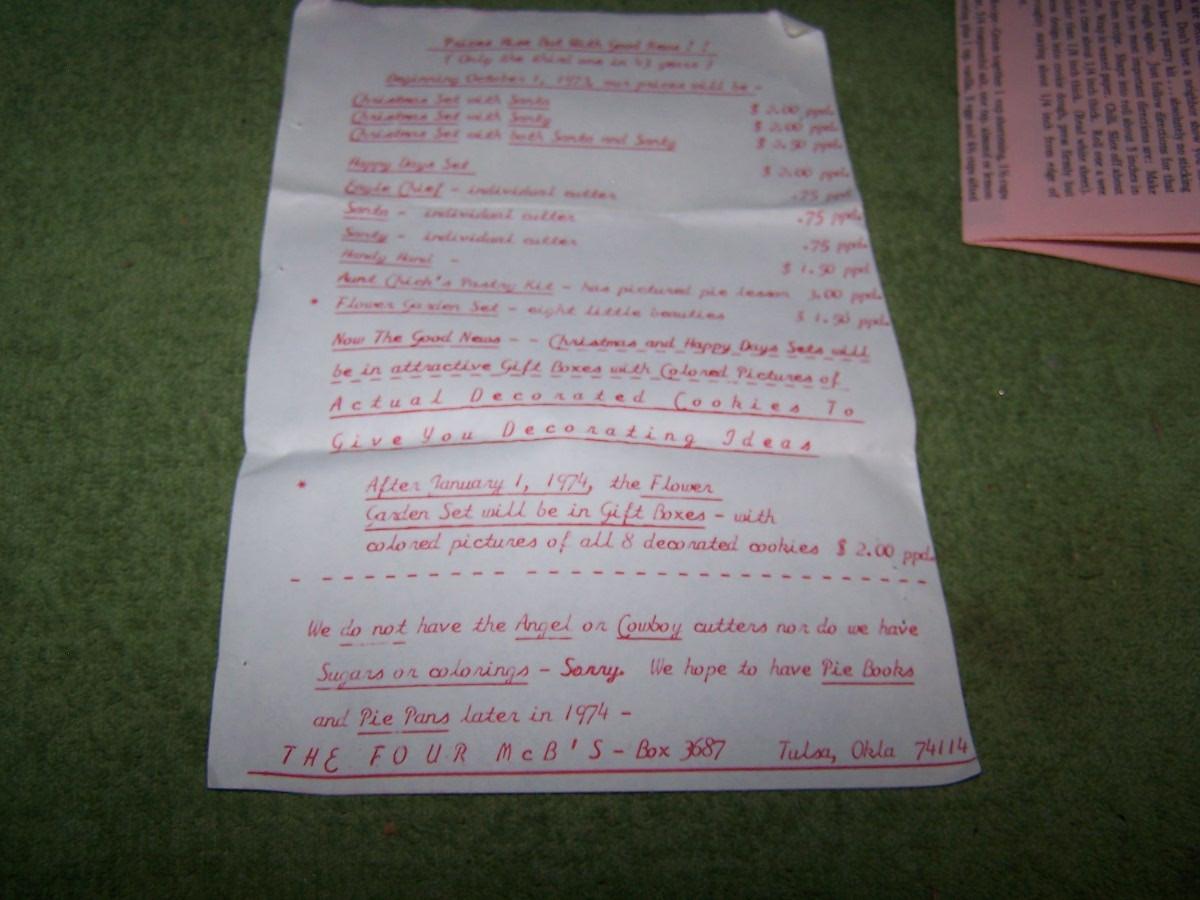 Prices Rise But With Good News ! !
( Only the third one in 43 years )
Beginning October 1, 1973, our prices will be -
Christmas Set with Santa $ 2.00 ppd.
Christmas Set with Santy $ 2.00 ppd.
Christmas Set with both Santa and Santy $ 2.50 ppd.
Happy Days Set $ 2.00 ppd.
Eagle Chief - individual cutter .75 ppd.
Santa - individual cutter .75 ppd.
Santy - individual cutter .75 ppd.
Handy Hand - $ 1.50 ppd.
Aunt Chick's Pastry Kit - has pictured pie lesson 3.00 ppd.
* Flower Garden Set - eight little beauties $ 1.50 ppd.
Now The Good News - - Christmas and Happy Days Sets will
be in attractive Gift Boxes with Colored Pictures of
Actual Decorated Cookies To
Give You Decorating Ideas
* After January 1, 1974, the Flower
Garden Set will be in Gift Boxes - with
colored pictures of all 8 decorated cookies $ 2.00 ppd.
We do not have the Angel or Cowboy cutters nor do we have
Sugars or colorings - Sorry. We hope to have Pie Books
and Pie Pans later in 1974 -
THE FOUR McB'S - Box 3687 Tulsa, Okla 74114